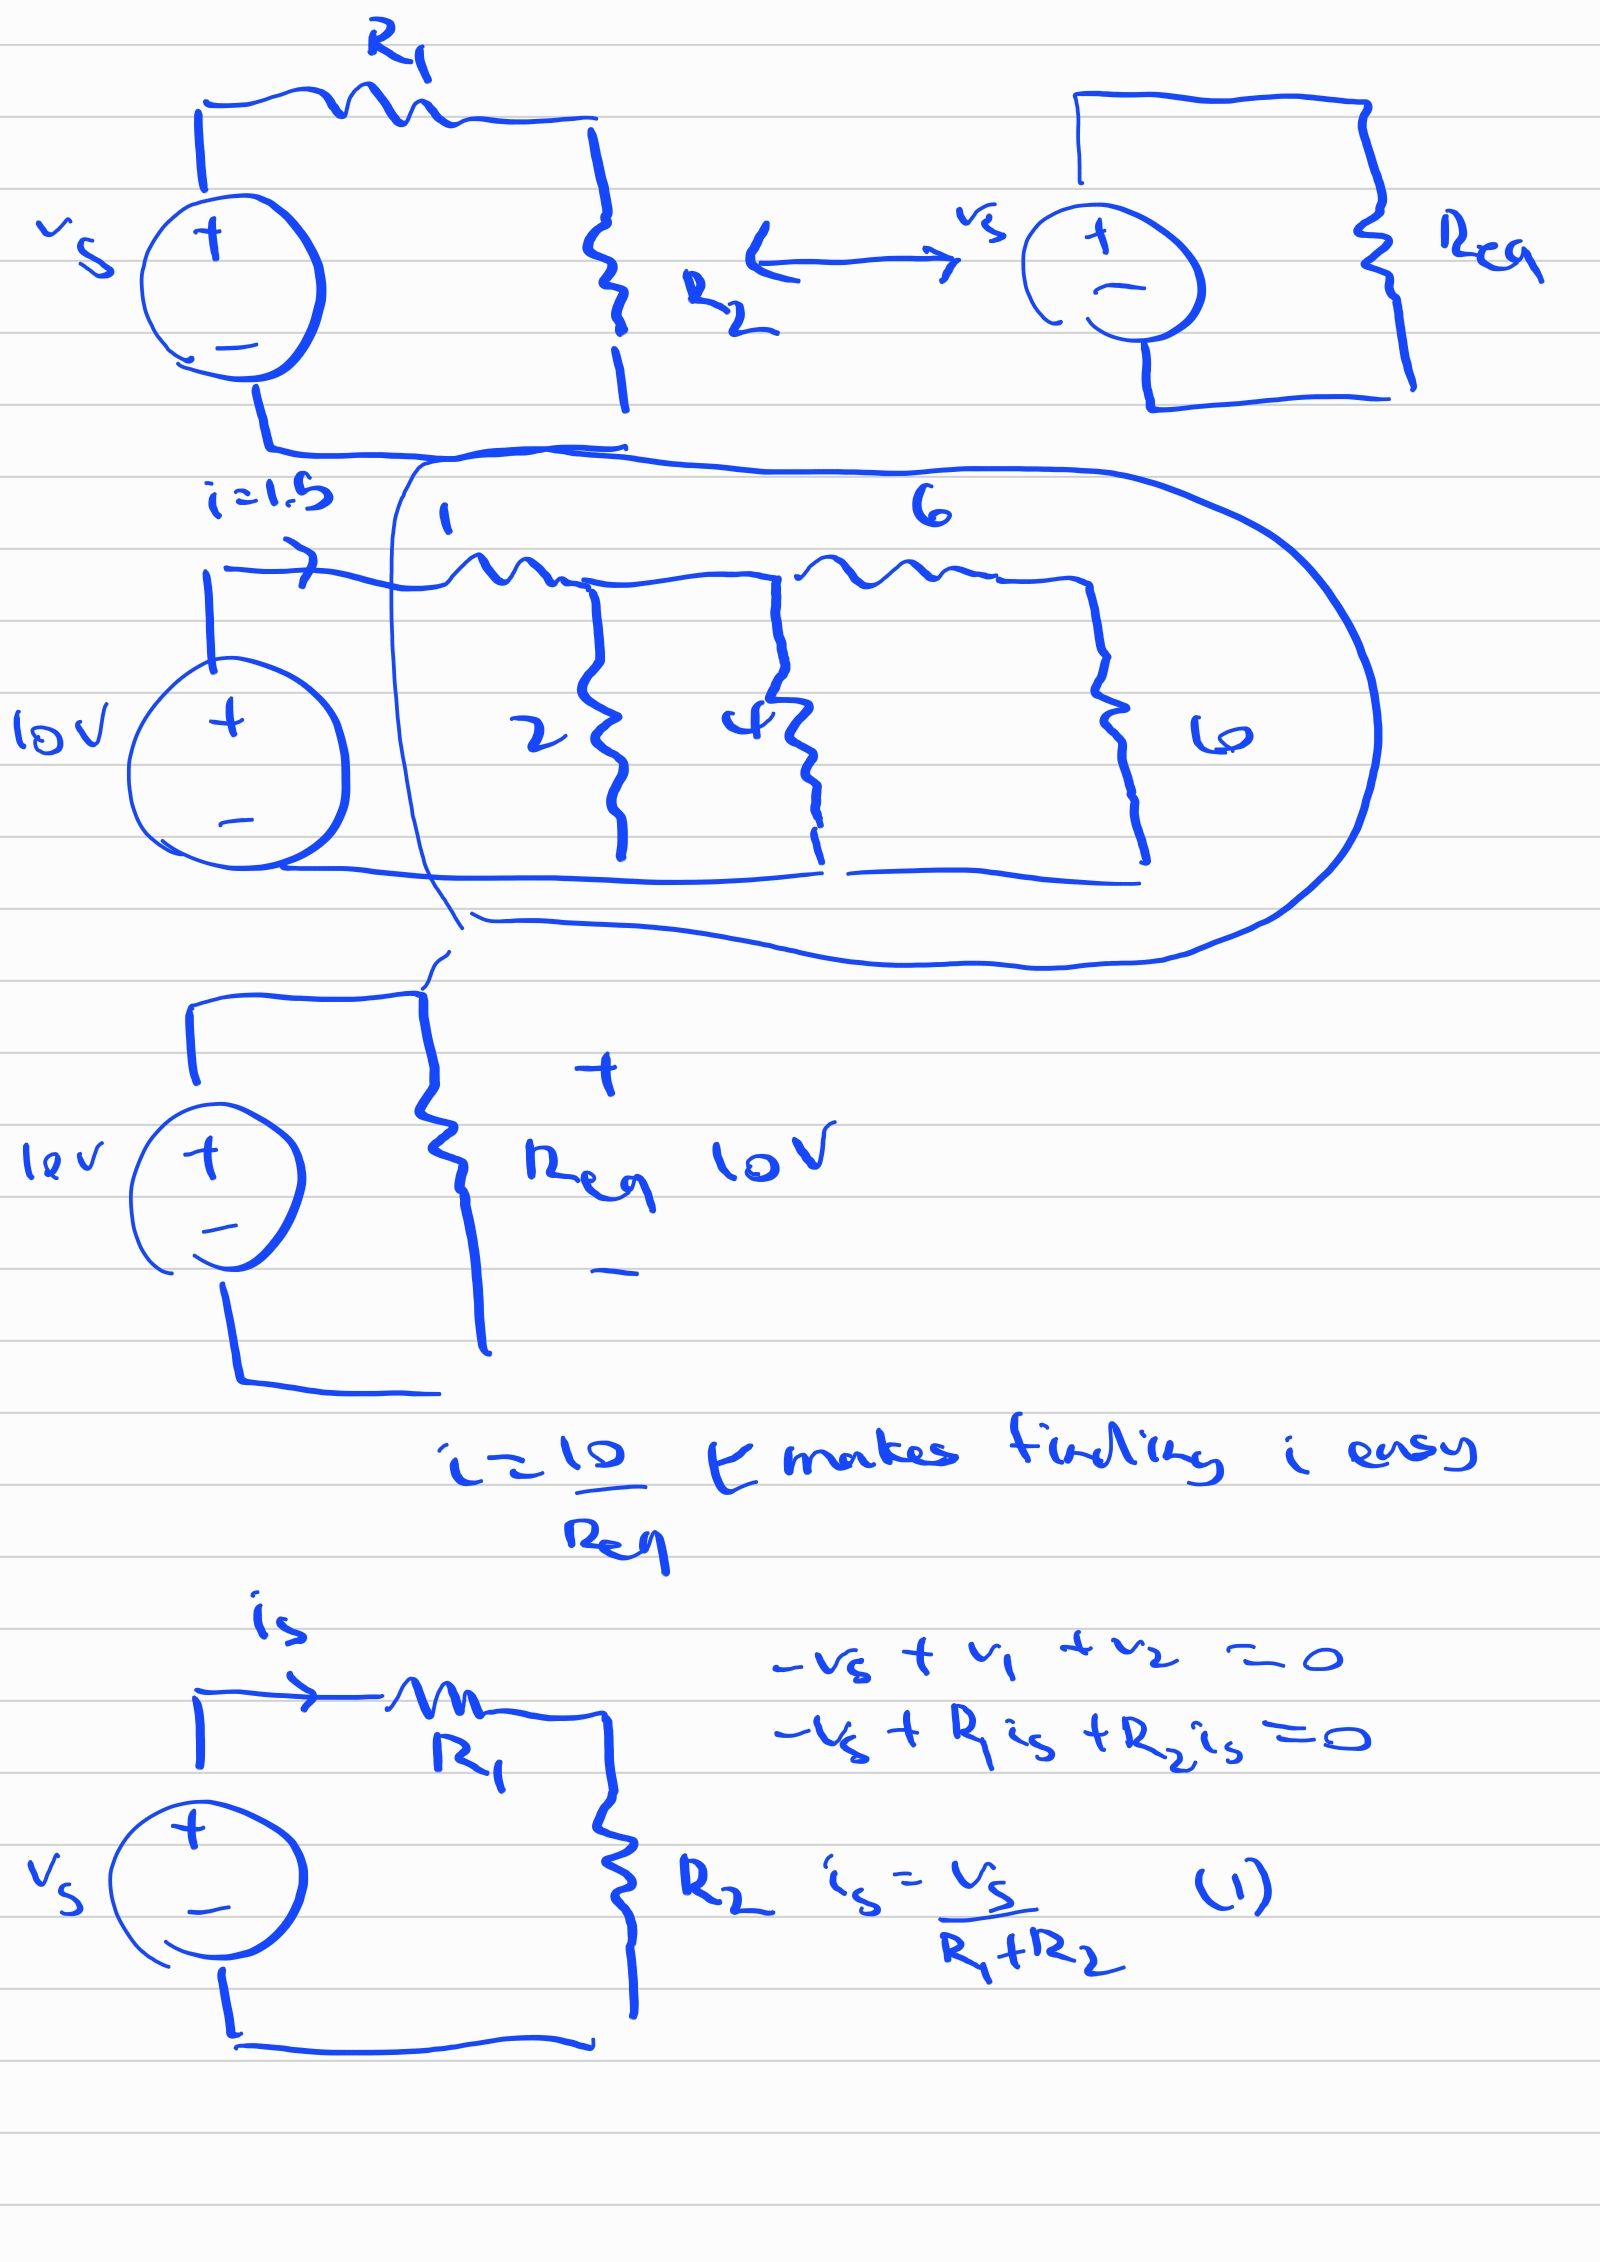 R1
vs
R2
vs
Req
i=1.5
1
6
10V
2
4
6
10V
Req 10V
i=10/Req ← makes finding i easy
is
-vs + v1 + v2 = 0
-vs + R1is + R2is = 0
R1
vs
R2
is = vs/(R1+R2) (1)